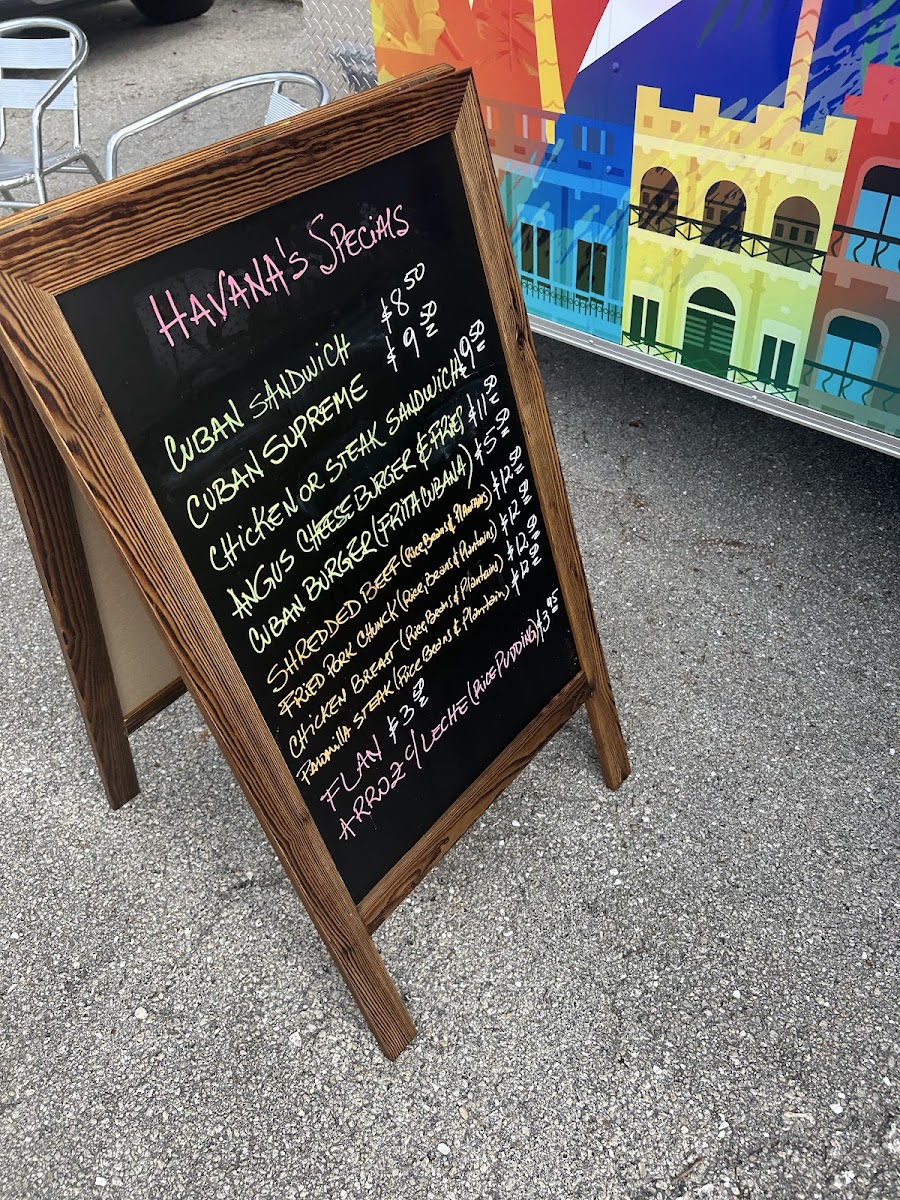 Havana's Specials
CUBAN SANDWICH $8.50
CUBAN SUPREME $9.50
CHICKEN OR STEAK SANDWICH $9.50
ANGUS CHEESE BURGER & FRIES $11.50
CUBAN BURGER (FRITA CUBANA) $5.50
SHREDDED BEEF (Rice, Beans & Plantains) $12.50
FRIED PORK CHUNCK (Rice, Beans & Plantains) $12.50
CHICKEN BREAST (Rice, Beans & Plantains) $12.50
Palomilla STEAK (Rice Beans & Plantains) $12.50
FLAN $3.50
ARROZ C/LECHE (RICE PUDDING) $3.95